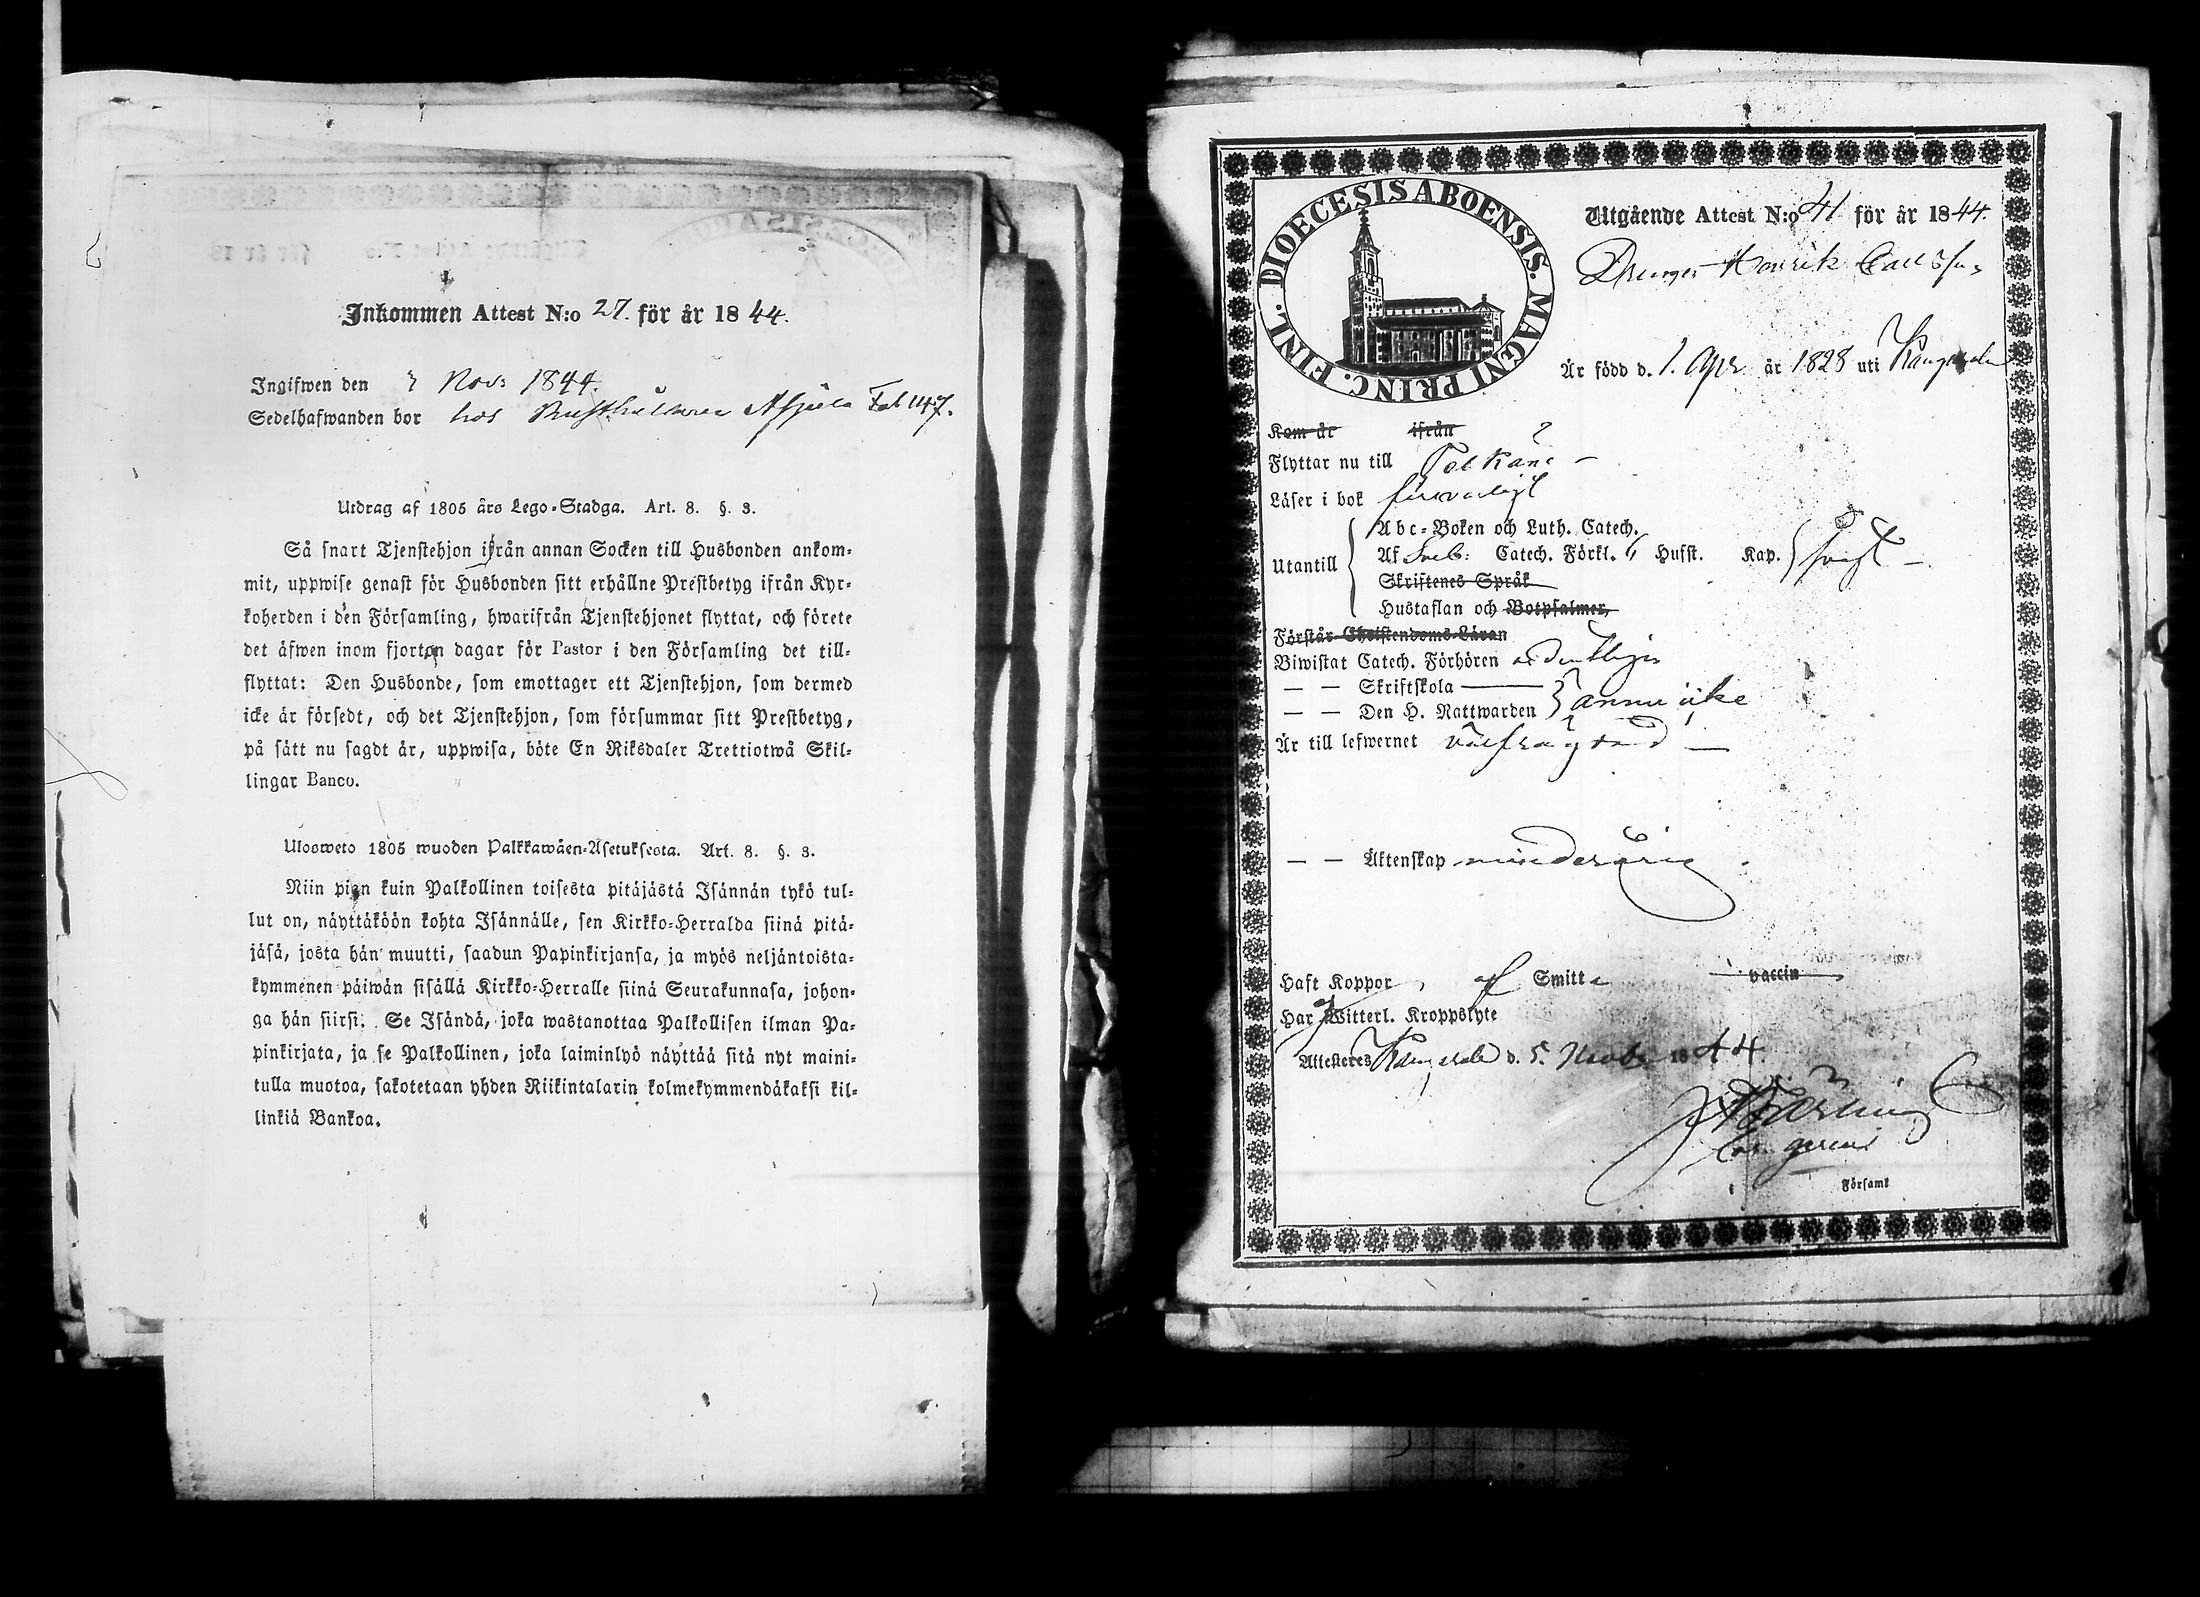 Inkommen Attest N:o 27. för år 1844.
Ingifwen den Nov: 1844.
Sedelhafwanden bor hos Rusthållaren Fol 147.
Utdrag af 1805 års Lego-Stadga. Art. 8. §. 3.
Så snart Tjenstehjon ifrån annan Socken till Husbonden ankom-
mit, uppwise genast för Husbonden sitt erhållne Prestbetyg ifrån Kyr-
koherden i den Församling, hwarifrån Tjenstehjonet flyttat, och förete
det äfwen inom fjorton dagar för Pastor i den Församling det till-
flyttat: Den Husbonde, som emottager ett Tjenstehjon, som dermed
icke är försedt, och det Tjenstehjon, som försummar sitt Prestbetyg,
på sätt nu sagdt är, uppwisa, böte En Riksdaler Trettiotwå Skil-
lingar Banco.
Ulosweto 1805 wuoden Palkkawäen-Asetuksesta. Art. 8. §. 3.
Niin pian kuin Palkollinen toisesta pitäjästä Isännän tykö tul-
lut on, näyttäköön kohta Isännälle, sen Kirkko-Herralda siinä pitä-
jäsä, josta hän muutti, saadun Papinkirjansa, ja myös neljäntoista-
kymmenen päiwän sisällä Kirkko-Herralle siinä Seurakunnasa, johon-
ga hän siirsi. Se Isändä, joka wastanottaa Palkollisen ilman Pa-
pinkirjata, ja se Palkollinen, joka laiminlyö näyttää sitä nyt maini-
tulla muotoa, sakotetaan yhden Riikintalarin kolmekymmendäkaksi kil-
linkiä Bankoa.
DIOECESIS ABOENSIS. MAGNI PRINC. FINL.
Utgående Attest N:o 41 för år 1844.
Drengen Henrik Carlsson
Är född d. 1. Apr år 1828 uti Kangasala
Kom år ifrån
Flyttar nu till Pelkäne
Läser i bok försvarligt
Utantill
Abc-Boken och Luth. Catech.
Af Sveb: Catech. Förkl. Husst. Kap. svagt
Skriftenes Språk
Hustaflan och Botpsalmer,
Förstår Christendoms-Läran
Biwistat Catech. Förhören ordentligen
— — Skriftskola
— — Den H. Nattwarden ännu icke
Är till lefwernet välfrägdad
— — Äktenskap minderårig
Haft Koppor af Smitta vaccin
Har Witterl. Kroppslyte
Attesteres Kangasala d. 5. Novbr 1844.
Församl